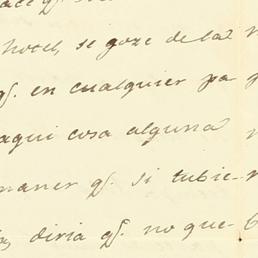 hotel, se goze de la
q̃. en cualquier pa
aqui cosa alguna
maner q̃. si tubie
diria q̃. no que